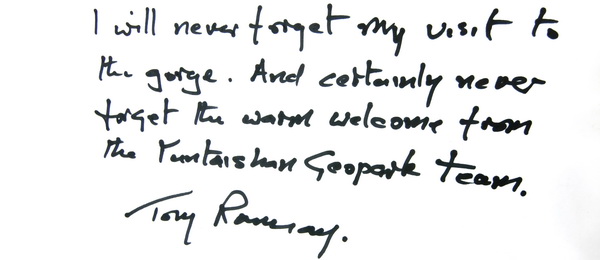 I will never forget my visit to
the gorge. And certainly never
forget the warm welcome from
the Yuntaishan Geopark team.
Tony Ramsay.